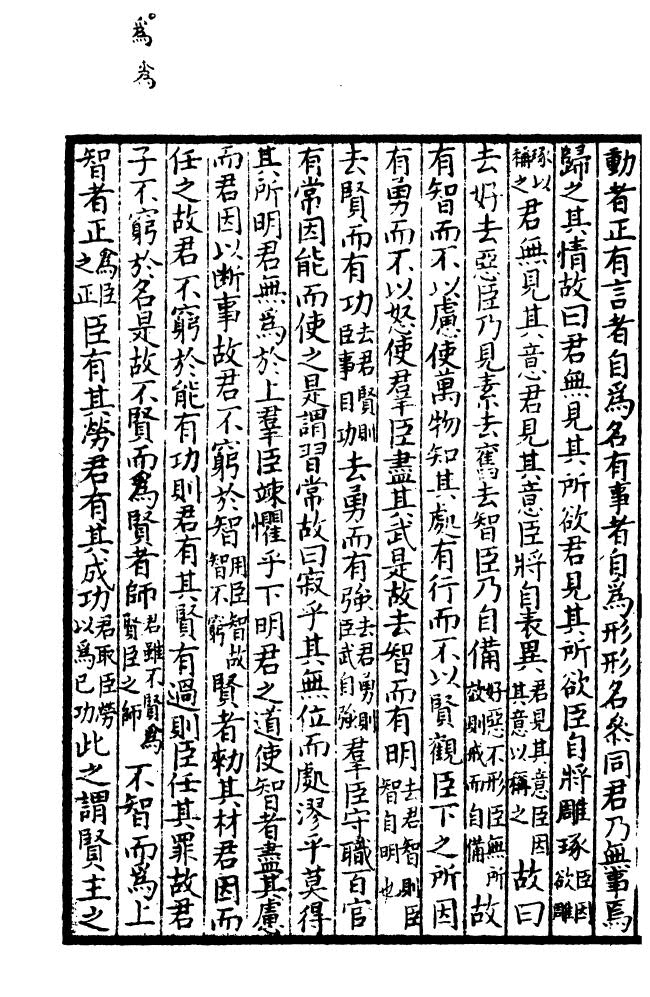 動者正有言者自爲名有事者自爲形形名叅同君乃無事焉
歸之其情故曰君無見其所欲君見其所欲臣自將雕琢臣因欲雕
琢以稱之君無見其意君見其意臣將自表異君見其意臣因其意以稱之故曰
去好去惡臣乃見素去舊去智臣乃自備好惡不形臣無所效則戒而自備故
有智而不以慮使萬物知其處有行而不以賢觀臣下之所因
有勇而不以怒使羣臣盡其武是故去智而有明去君智則臣智自明也
去賢而有功去君賢則臣事自功去勇而有強去君勇則臣武自強羣臣守職百官
有常因能而使之是謂習常故曰寂乎其無位而處漻乎莫得
其所明君無爲於上羣臣竦懼乎下明君之道使智者盡其慮
而君因以断事故君不窮於智用臣智故智不窮賢者勑其材君因而
任之故君不窮於能有功則君有其賢有過則臣任其罪故君
子不窮於名是故不賢而爲賢者師君雖不賢爲賢臣之師不智而爲上
智者正爲臣之正臣有其勞君有其成功君取臣勞以爲已功此之謂賢主之
爲